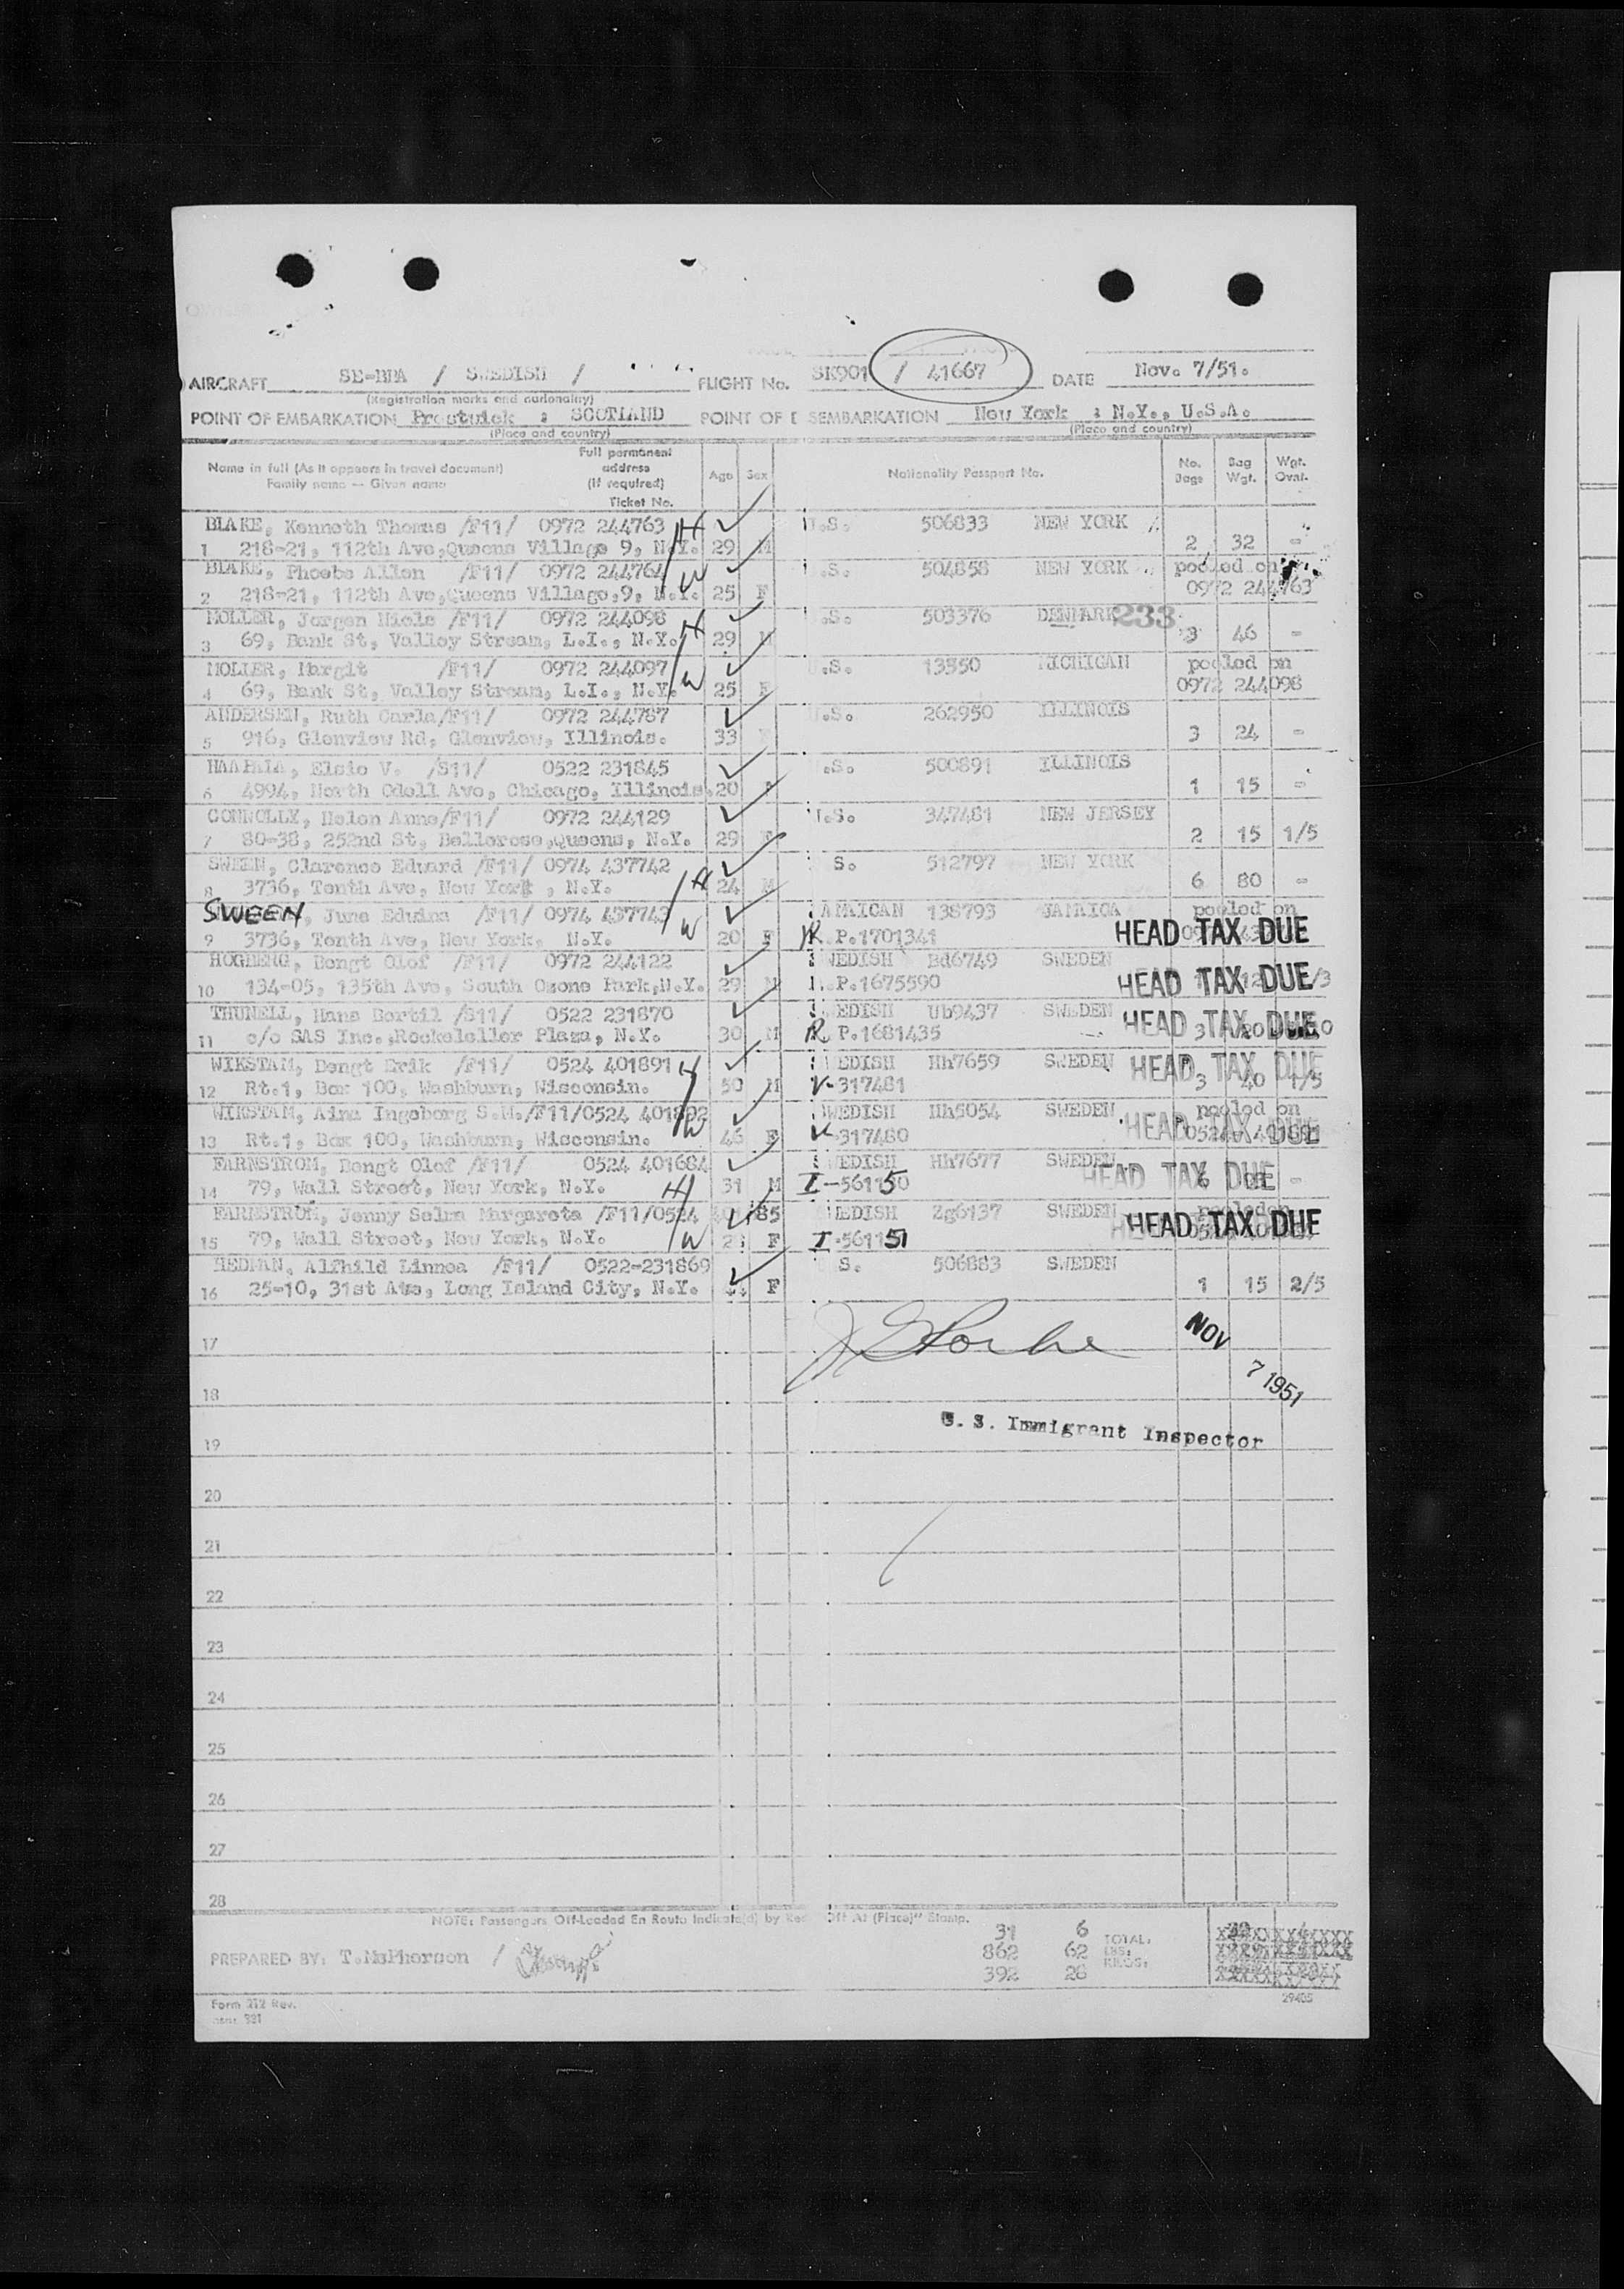 AIRCRAFT SE-BPA / SWEDISH / FLIGHT No. SK901 / 41667 DATE Nov. 7/51.
(Registration marks and nationality)
POINT OF EMBARKATION Prestwick : SCOTLAND POINT OF D SEMBARKATION New York : N.Y., U.S.A.
(Place and country) (Place and country)
Name in full (As it appears in travel document) Family name — Given name Full permanent address (If required) Ticket No. Age Sex Nationality Passport No. No. Bags Bag Wgt. Wgt. Oval.
BLAKE, Kenneth Thomas /F11/ 0972 244763 H U.S. 506833 NEW YORK
1 218-21, 112th Ave,Queens Village 9, N.Y. 29 M 2 32 -
BLAKE, Phoebe Allen /F11/ 0972 244764 W .S. 504858 NEW YORK pooled on
2 218-21, 112th Ave,Queens Village,9, N.Y. 25 F 0972 244763
MOLLER, Jorgen Niels /F11/ 0972 244098 H .S. 503376 DENMARK 233
3 69, Bank St, Valley Stream, L.I., N.Y. 29 M 3 46 -
MOLLER, Margit /F11/ 0972 244097 W U.S. 13550 MICHIGAN pooled on
4 69, Bank St, Valley Stream, L.I., N.Y. 25 F 0972 244098
ANDERSEN, Ruth Carla/F11/ 0972 244787 U.S. 262950 ILLINOIS
5 916, Glenview Rd, Glenview, Illinois. 33 F 3 24 -
HAAPALA, Elsie V. /S11/ 0522 231845 .S. 500891 ILLINOIS
6 4994, North Odell Ave, Chicago, Illinois. 20 F 1 15 -
CONNOLLY, Helen Anne/F11/ 0972 244129 U.S. 347481 NEW JERSEY
7 80-38, 252nd St, Bellerose,Queens, N.Y. 29 F 2 15 1/5
SWEEN, Clarence Edward /F11/ 0974 437742 H S. 512797 NEW YORK
8 3736, Tenth Ave, New York , N.Y. 24 M 6 80 -
SWEEN, June Edwina /F11/ 0974 437743 W JAMAICAN 138793 JAMAICA pooled on
9 3736, Tenth Ave, New York, N.Y. 20 F R.P.1701341 HEAD TAX DUE
HOGBERG, Bengt Olof /F11/ 0972 244122 SWEDISH Bd6749 SWEDEN
10 134-05, 135th Ave, South Ozone Park,N.Y. 29 M R.P.1675590 HEAD TAX DUE /3
THUNELL, Hans Bertil /S11/ 0522 231870 SWEDISH Ub9437 SWEDEN
11 c/o SAS Inc.,Rockeleller Plaza, N.Y. 30 M R P.1681435 HEAD TAX DUE 3 20
WIKSTAM, Bengt Erik /F11/ 0524 401891 H SWEDISH Hh7659 SWEDEN HEAD TAX DUE
12 Rt.1, Box 100, Washburn, Wisconsin. 50 M V-317481 3 40 1/5
WIKSTAM, Aina Ingeborg S.M./F11/0524 401892 W SWEDISH Hh5054 SWEDEN pooled on
13 Rt.1, Box 100, Washburn, Wisconsin. 46 F V-317480 HEAD TAX DUE 0524 401891
FARNSTROM, Bengt Olof /F11/ 0524 401684 SWEDISH Hh7677 SWEDEN
14 79, Wall Street, New York, N.Y. H 31 M I-561150 HEAD TAX DUE 6 -
FARNSTROM, Jenny Selma Margareta /F11/0524 401685 SWEDISH Zg6137 SWEDEN pooled on
15 79, Wall Street, New York, N.Y. W F I-561151 HEAD TAX DUE
HEDMAN, Alfhild Linnea /F11/ 0522-231869 S. 506883 SWEDEN
16 25-10, 31st Ave, Long Island City, N.Y. F 1 15 2/5
17 NOV
18 7 1951
U. S. Immigrant Inspector
19
20
21
22
23
24
25
26
27
28
NOTE: Passengers Off-Loaded En Route Indicate(d) by Red Off At (Place)" Stamp.
31 6 TOTAL:
PREPARED BY: T.McPherson / 862 62 LBS:
392 28 KILOS:
Form 212 Rev. 29405